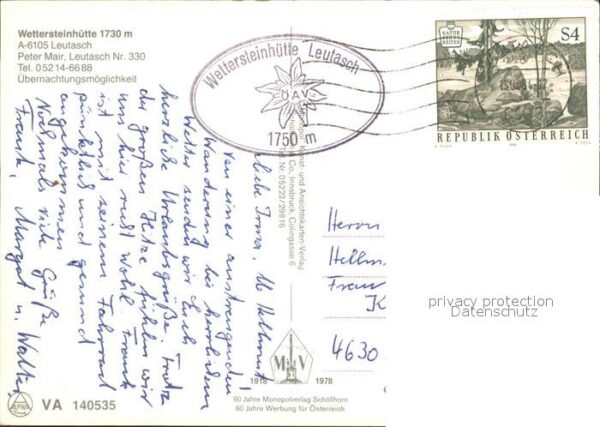 Wettersteinhütte 1730 m
A-6105 Leutasch
Peter Mair, Leutasch Nr. 330
Tel. 05214-6688
Übernachtungsmöglichkeit
Wettersteinhütte Leutasch
ÖAV
1750 m
NATUR
S4
REPUBLIK ÖSTERREICH
Kunst- und Ansichtskarten-Verlag
Co., Innsbruck, Colingasse 6
Tel. Nr. 05222/29816
Liebe Irma, lb. Hellmut
Von einer anstrengenden
Wanderung bei herrlichem
Wetter senden wir Euch
herzliche Urlaubsgrüße. Trotz
der großen Hitze fühlen wir
uns hier recht wohl. Frank
ist mit seinem Fahrrad
pünktlich und gesund
angekommen
Nochmals viele Grüße
Frank, Margot u. Walter
Herrn
Hellm
Frau
K
4630
privacy protection
Datenschutz
M V
1918 1978
60 Jahre Monopolverlag Schöllhorn
60 Jahre Werbung für Österreich
ALPINA
VA 140535